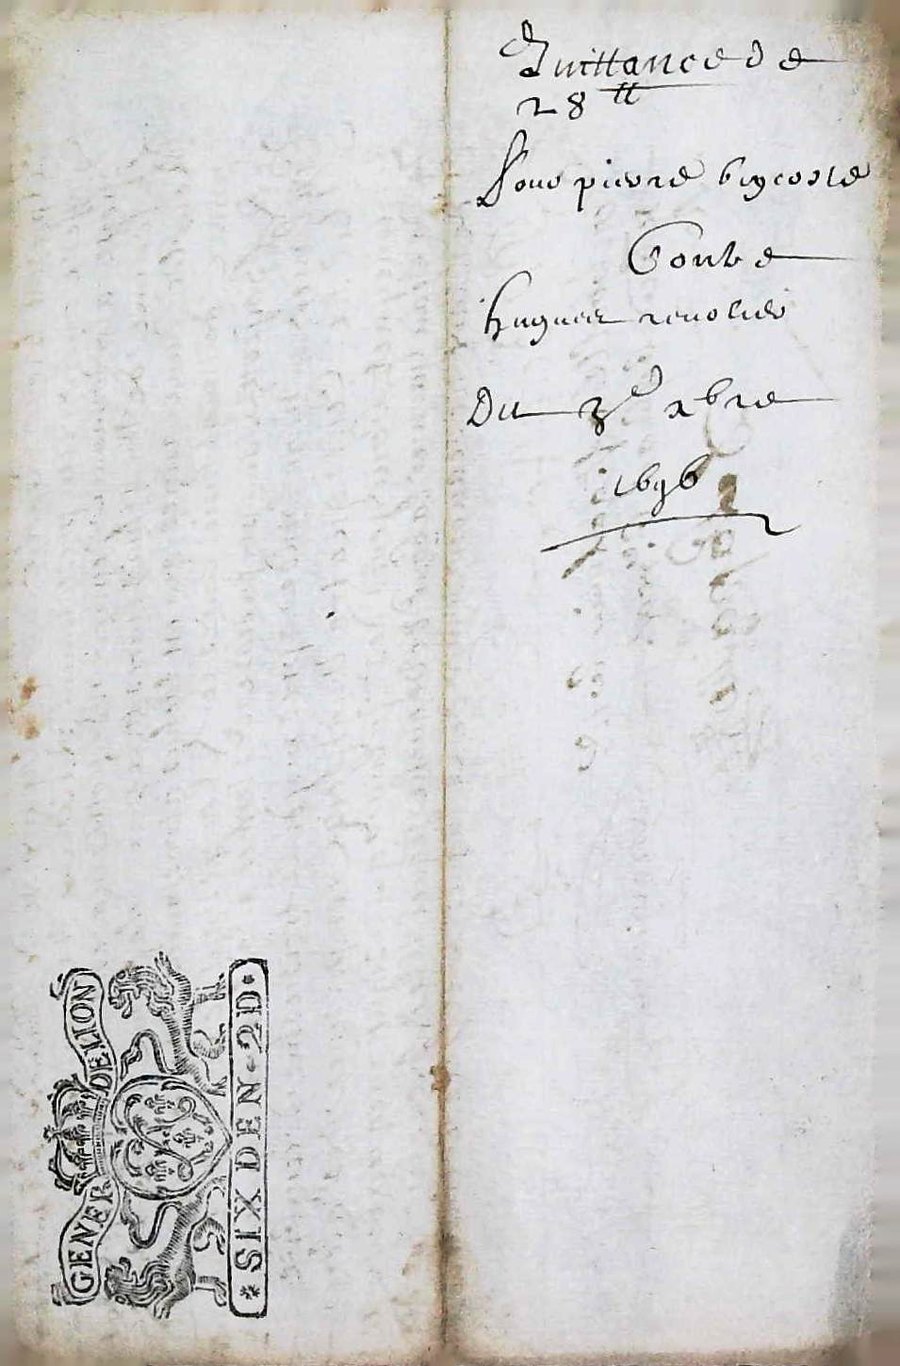 Quittance de
28 tt
Pour pierre bigcoste
Contre
hugues reuolier
Du 3e xbre
1696
GENER DE LION
* SIX DEN · 2D ·